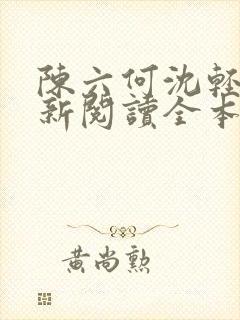 陳六何沈輕
新閱讀全本
黃尚勲